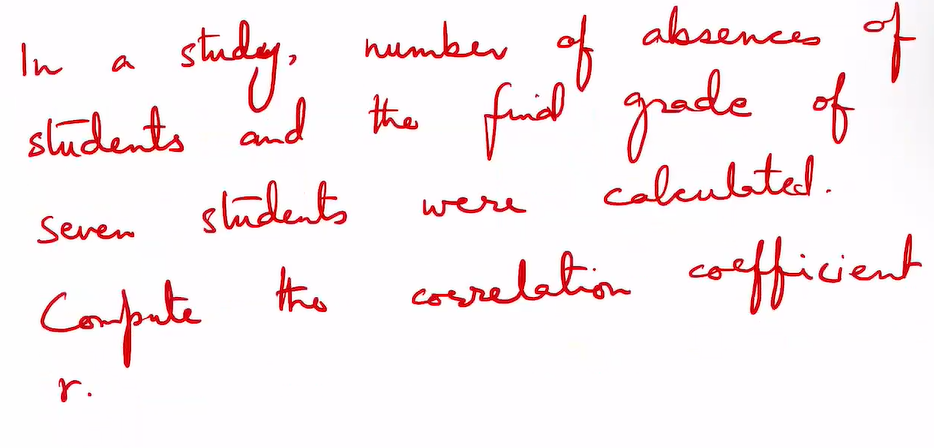 In a study, number of absences of
students and the final grade of
seven students were calculated.
Compute the correlation coefficient
r.